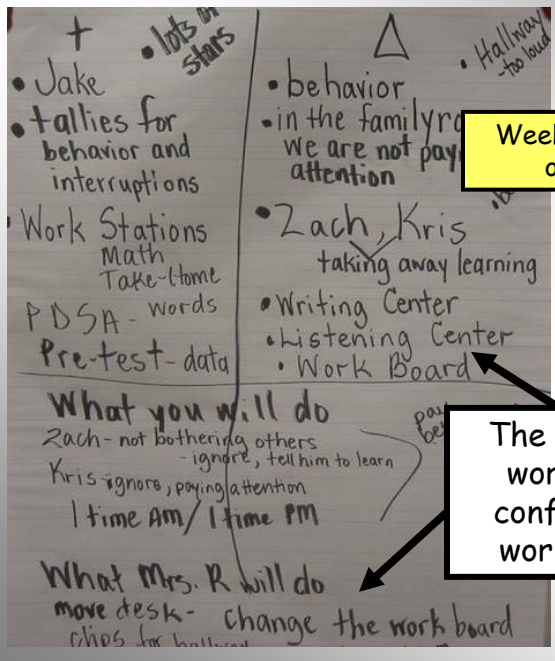 +
• lots of
stars
• Jake
• tallies for
behavior and
interruptions
• Work Stations
Math
Take-Home
PDSA - words
Pre-test - data
Δ
• Hallway
- too loud
• behavior
• in the
we are not
attention
• Zach, Kris
taking away learning
• Writing Center
• Listening Center
• Work Board
What you will do
Zach - not bothering others
- ignore, tell him to learn
Kris - ignore, paying attention
1 time AM / 1 time PM
What Mrs. R will do
move desk - change the work board
clips for hallway
The